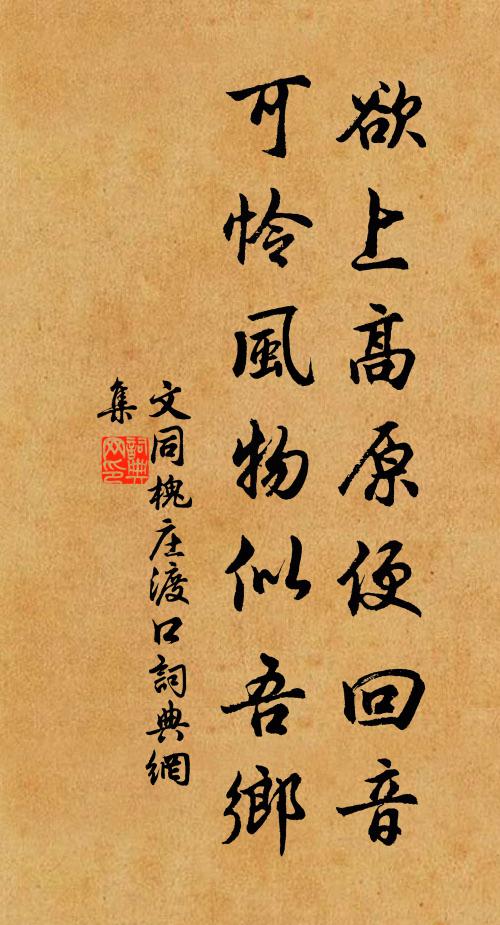 欲上高原便回音
可怜風物似吾鄉
文同槐庄渡口詞典網
集
詞典
网印